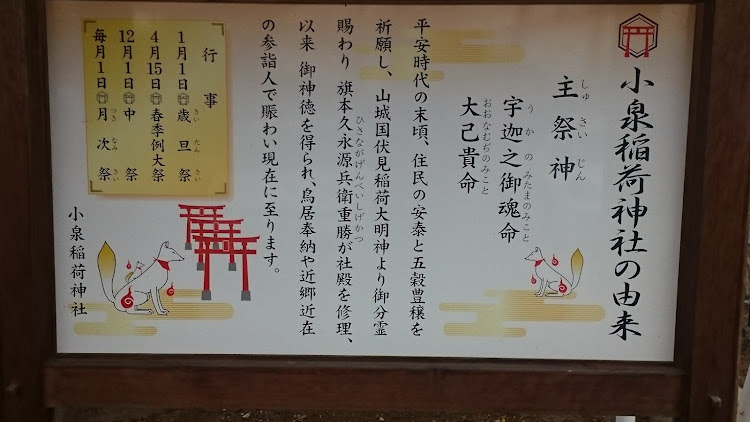 小泉稲荷神社の由来
主祭神
しゅさいじん
宇迦之御魂命
うかのみたまのみこと
大己貴命
おおなむぢのみこと
平安時代の末頃、住民の安泰と五穀豊穣を
祈願し、山城国伏見稲荷大明神より御分霊
賜わり 旗本久永源兵衛重勝が社殿を修理、
ひさながげんべいしげかつ
以来 御神徳を得られ、鳥居奉納や近郷近在
の参詣人で賑わい現在に至ります。
行事
1月1日 歳旦祭
さいたんさい
4月15日 春季例大祭
12月1日 中祭
毎月1日 月次祭
つきなみさい
小泉稲荷神社